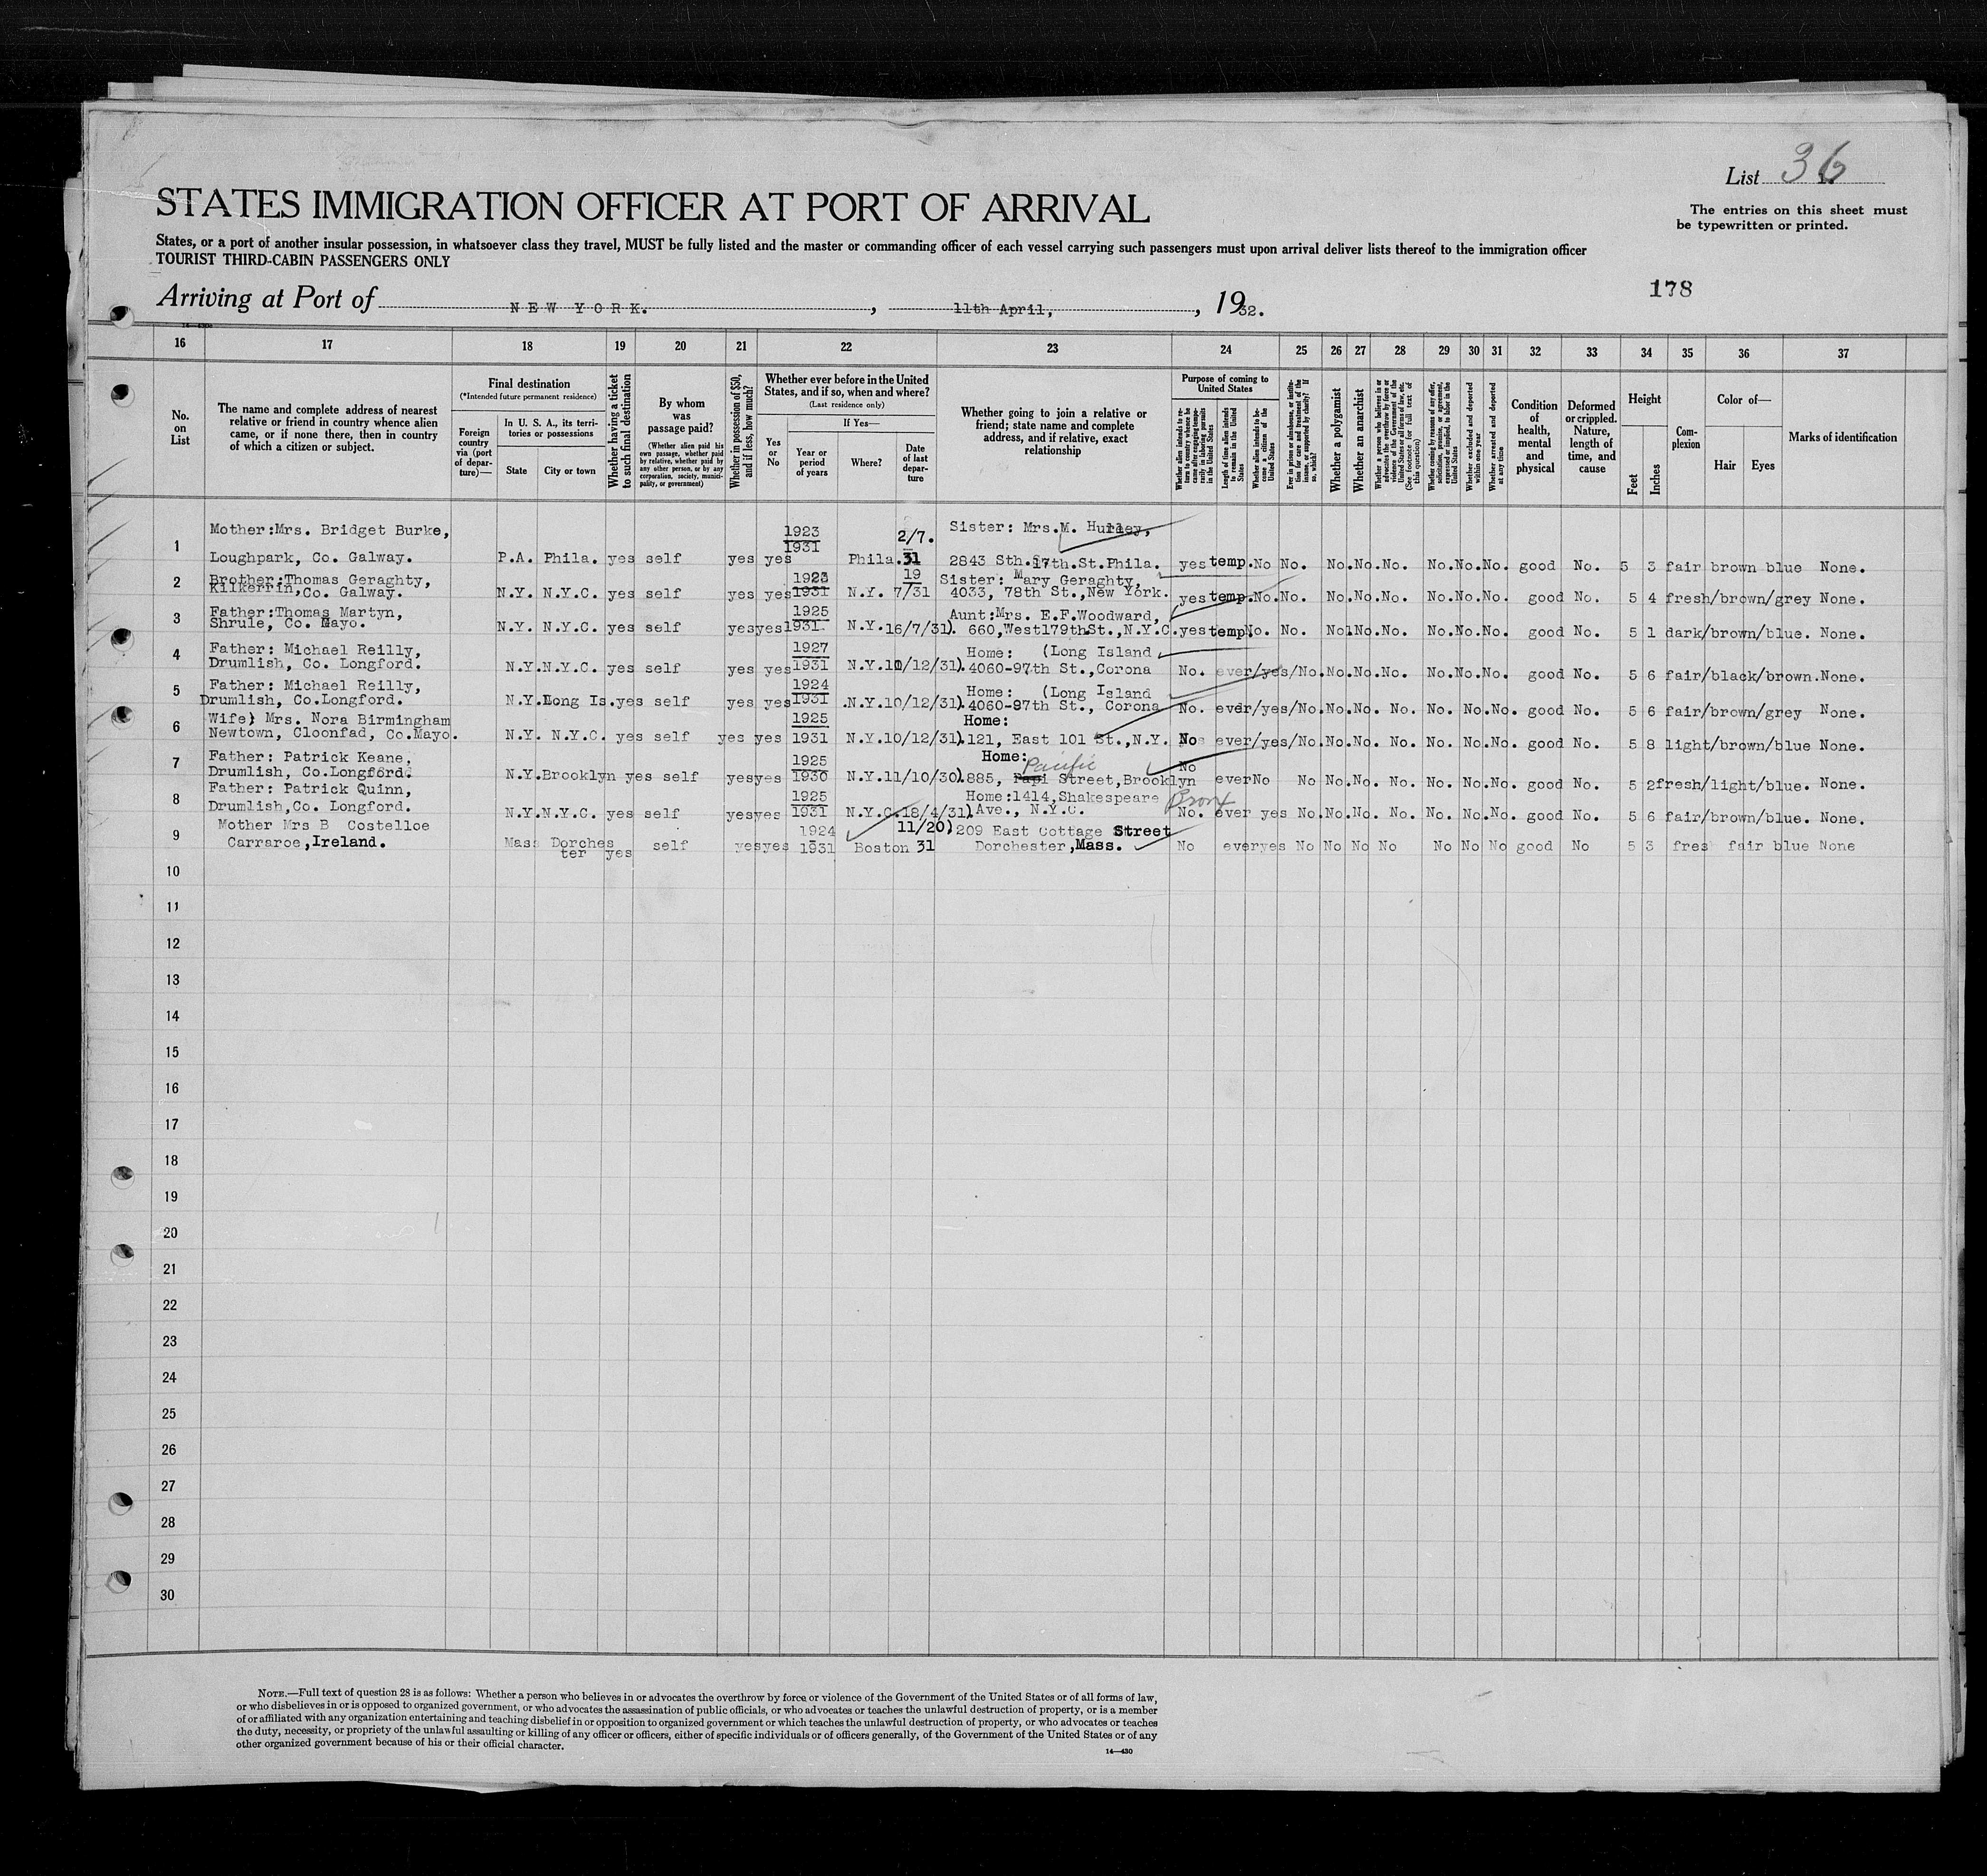 List 36
STATES IMMIGRATION OFFICER AT PORT OF ARRIVAL
The entries on this sheet must
be typewritten or printed.
States, or a port of another insular possession, in whatsoever class they travel, MUST be fully listed and the master or commanding officer of each vessel carrying such passengers must upon arrival deliver lists thereof to the immigration officer
TOURIST THIRD-CABIN PASSENGERS ONLY
178
Arriving at Port of NEW YORK. , 11th April, , 1932.
16 17 18 19 20 21 22 23 24 25 26 27 28 29 30 31 32 33 34 35 36 37
No. on List
The name and complete address of nearest relative or friend in country whence alien came, or if none there, then in country of which a citizen or subject.
Final destination
(*Intended future permanent residence)
Foreign country via (port of departure)—
In U. S. A., its territories or possessions
State
City or town
Whether having a ticket to such final destination
By whom was passage paid?
(Whether alien paid his own passage, whether paid by relative, whether paid by any other person, or by any corporation, society, municipality, or government)
Whether in possession of $50, and if less, how much?
Whether ever before in the United States, and if so, when and where?
(Last residence only)
Yes or No
If Yes—
Year or period of years
Where?
Date of last departure
Whether going to join a relative or friend; state name and complete address, and if relative, exact relationship
Purpose of coming to United States
Whether alien intends to return to country whence he came after engaging temporarily in laboring pursuits in the United States
Length of time alien intends to remain in the United States
Whether alien intends to become a citizen of the United States
Ever in prison or almshouse, or institution for care and treatment of the insane, or supported by charity? If so, which?
Whether a polygamist
Whether an anarchist
Whether a person who believes in or advocates the overthrow by force or violence of the Government of the United States or all forms of law, etc. (See footnote for full text of this question)
Whether coming by reason of any offer, solicitation, promise, or agreement, expressed or implied, to labor in the United States
Whether excluded and deported within one year
Whether arrested and deported at any time
Condition of health, mental and physical
Deformed or crippled. Nature, length of time, and cause
Height
Feet
Inches
Complexion
Color of—
Hair Eyes
Marks of identification
Mother:Mrs. Bridget Burke, 1923 2/7. Sister: Mrs.M. Hurley,
1 Loughpark, Co. Galway. P.A. Phila. yes self yes yes 1931 Phila. 31 2843 Sth. 17th.St.Phila. yes temp.No No. No.No.No. No.No.No. good No. 5 3 fair brown blue None.
2 Brother:Thomas Geraghty, 1923 19 Sister: Mary Geraghty,
Kilkerrin,Co. Galway. N.Y. N.Y.C. yes self yes yes 1931 N.Y. 7/31 4033, 78th St.,New York. yes temp.No.No. No.No.No. No.No.No. good No. 5 4 fresh/brown/grey None.
3 Father:Thomas Martyn, 1925 Aunt:Mrs. E.F.Woodward,
Shrule, Co. Mayo. N.Y. N.Y.C. yes self yesyes 1931. N.Y.16/7/31). 660,West179thSt.,N.Y.C. yes temp.No. No. No.No.No. No.No.No. good No. 5 1 dark/brown/blue. None.
4 Father: Michael Reilly, 1927 Home: (Long Island
Drumlish, Co. Longford. N.Y.N.Y.C. yes self yes yes 1931 N.Y.10/12/31).4060-97th St.,Corona No. ever/yes/No.No.No.No. No.No.No. good No. 5 6 fair/black/brown.None.
5 Father: Michael Reilly, 1924 Home: (Long Island
Drumlish, Co.Longford. N.Y.Long Is.yes self yes yes 1931 .N.Y.10/12/31).4060-97th St., Corona No. ever/yes/No.No.No. No. No. No.No. good No. 5 6 fair/brown/grey None.
6 Wife) Mrs. Nora Birmingham 1925 Home:
Newtown, Cloonfad, Co.Mayo. N.Y. N.Y.C. yes self yes yes 1931 N.Y.10/12/31).121, East 101 St.,N.Y. No ever/yes/No.No.No. No. No. No.No. good No. 5 8 light/brown/blue None.
7 Father: Patrick Keane, 1925 Home: Pacific
Drumlish, Co.Longford. N.Y.Brooklyn yes self yesyes 1930 N.Y.11/10/30).885, Papi Street,Brooklyn No ever No No No.No. No. No. No.No. good No. 5 2 fresh/light/blue. None.
8 Father: Patrick Quinn, 1925 Home:1414,Shakespeare Bronx
Drumlish,Co. Longford. N.Y.N.Y.C. yes self yesyes 1931 N.Y.C.18/4/31).Ave., N.Y.C. No. ever yes No.No.No. No. No. No.No. good No. 5 6 fair/brown/blue. None.
9 Mother Mrs B Costelloe 1924 11/20) 209 East Cottage Street
Carraroe,Ireland. Mass Dorchester yes self yesyes 1931 Boston 31 Dorchester,Mass. No everyes No No No No No No No good No 5 3 fres fair blue None
10
11
12
13
14
15
16
17
18
19
20
21
22
23
24
25
26
27
28
29
30
NOTE.—Full text of question 28 is as follows: Whether a person who believes in or advocates the overthrow by force or violence of the Government of the United States or of all forms of law,
or who disbelieves in or is opposed to organized government, or who advocates the assassination of public officials, or who advocates or teaches the unlawful destruction of property, or is a member
of or affiliated with any organization entertaining and teaching disbelief in or opposition to organized government or which teaches the unlawful destruction of property, or who advocates or teaches
the duty, necessity, or propriety of the unlawful assaulting or killing of any officer or officers, either of specific individuals or of officers generally, of the Government of the United States or of any
other organized government because of his or their official character.
14—430